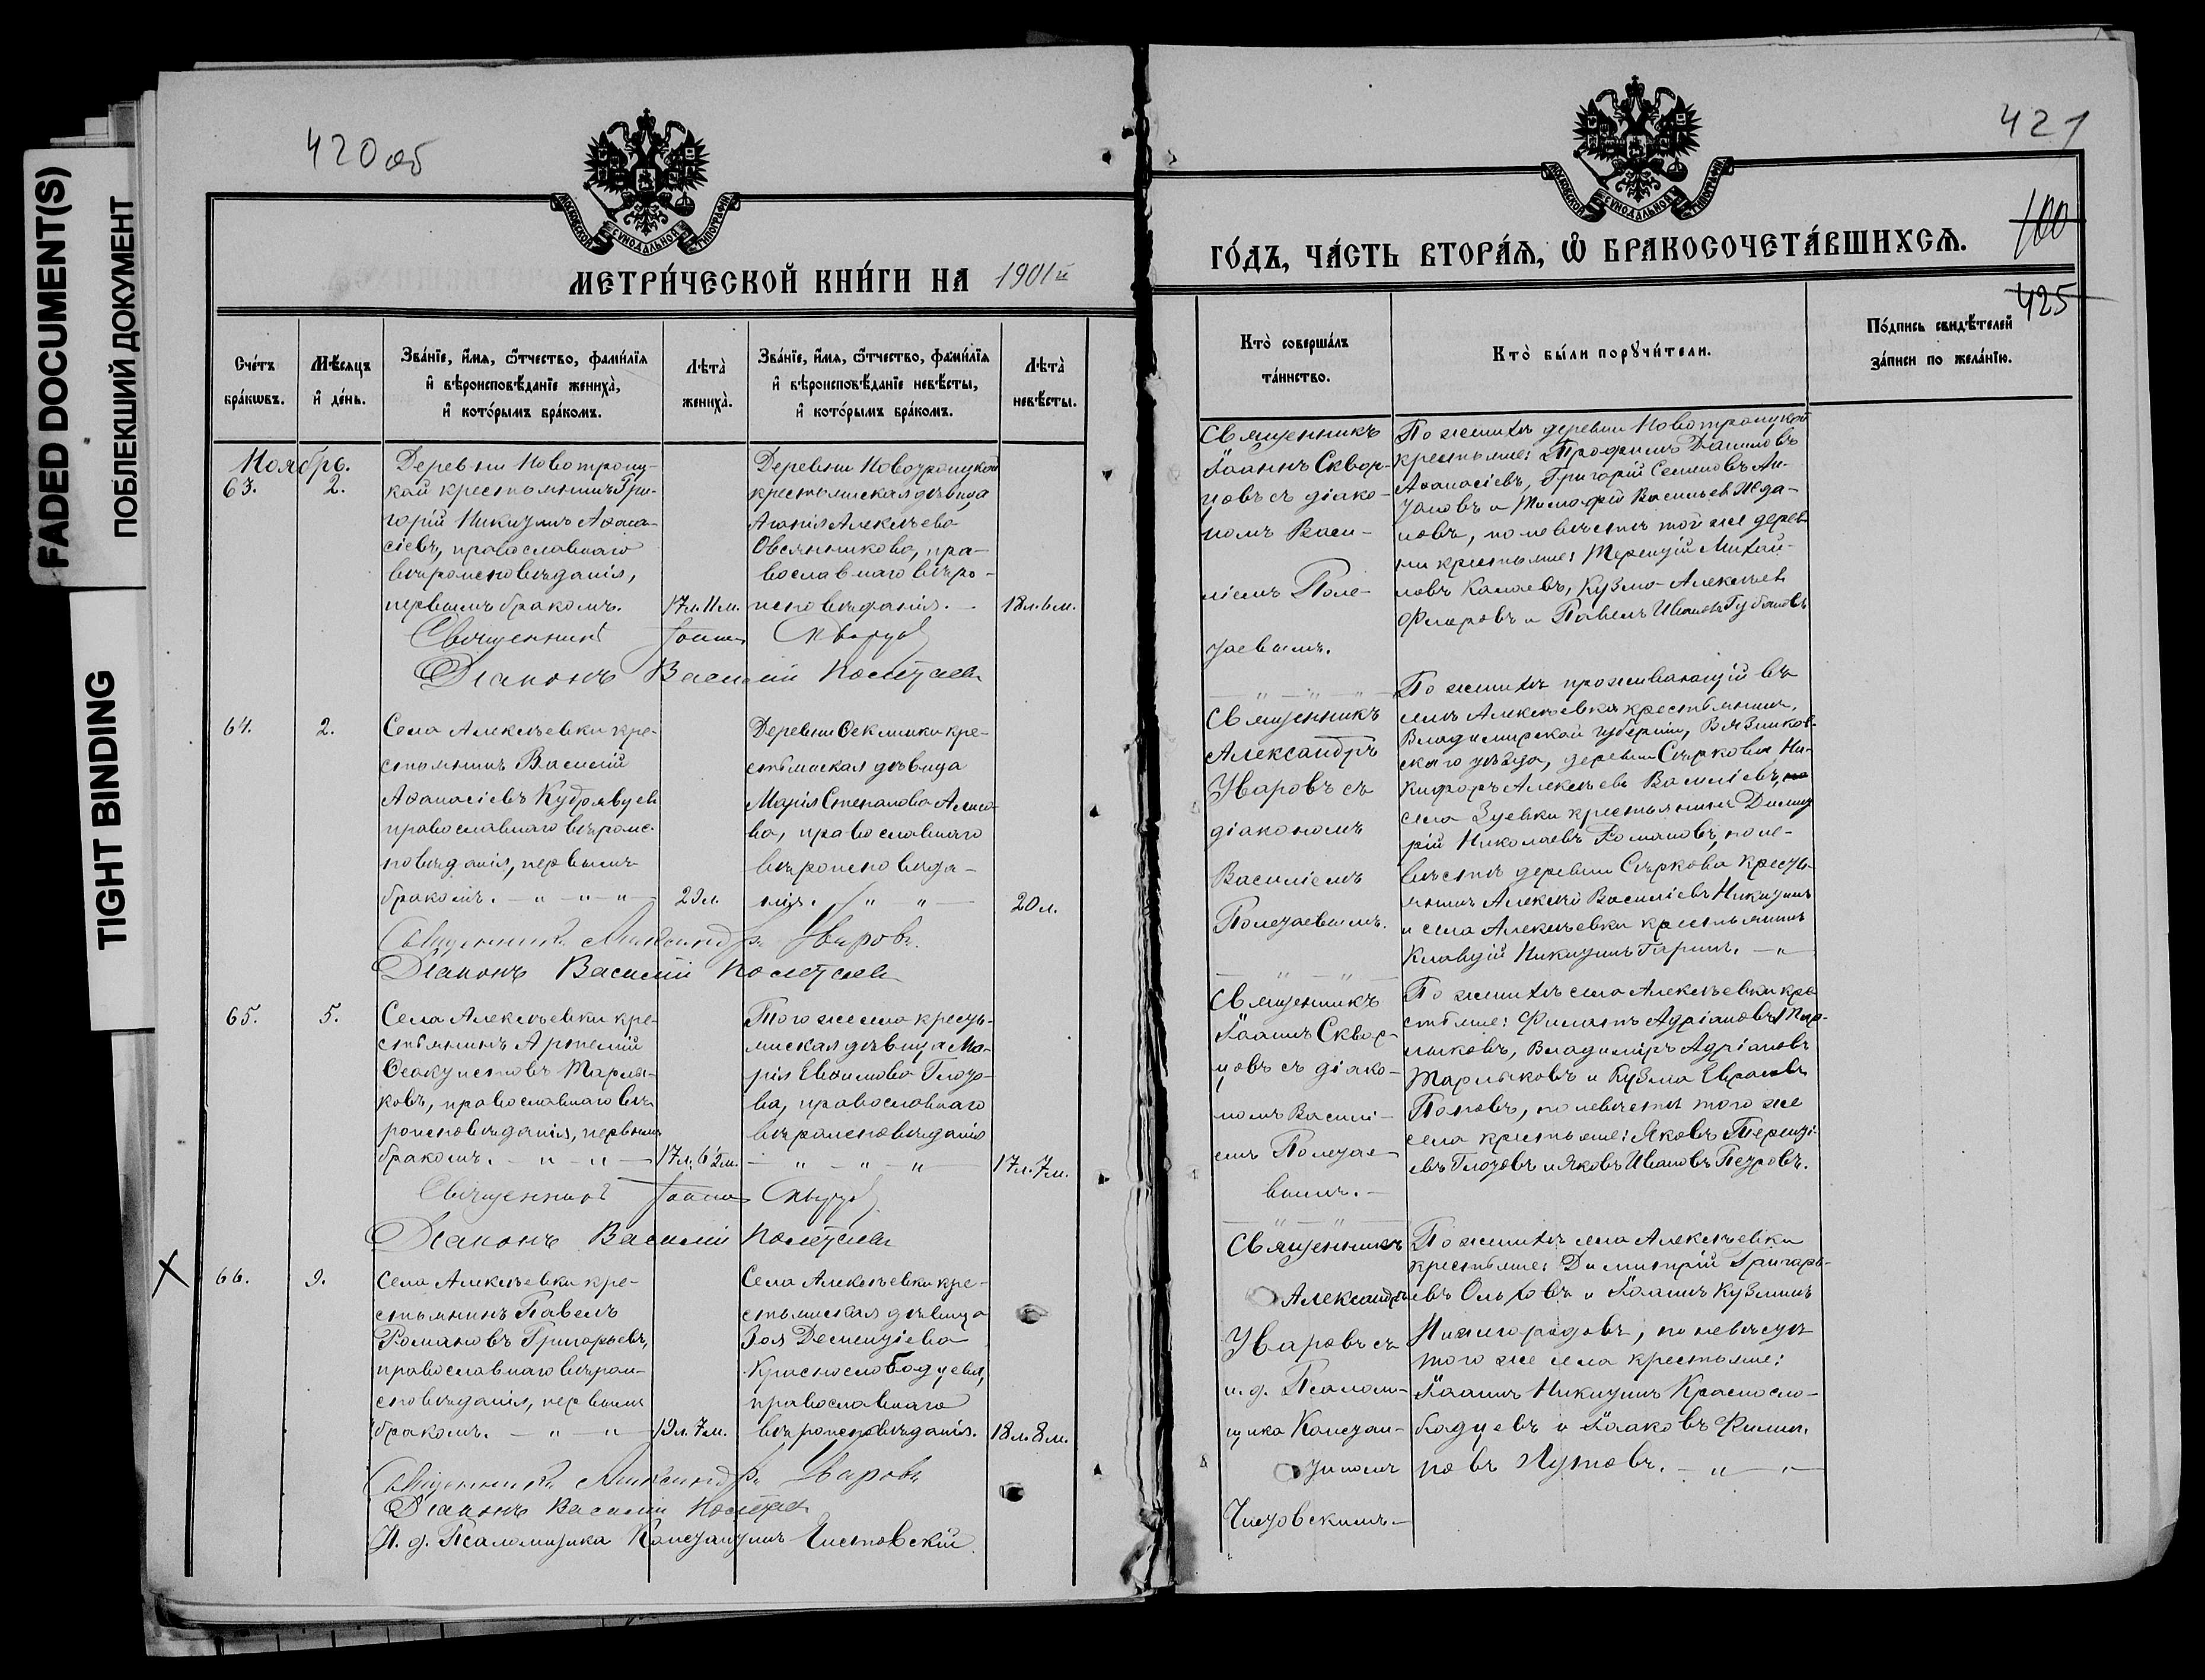 FADED DOCUMENT(S)
ПОБЛЕКШИЙ ДОКУМЕНТ
TIGHT BINDING
420 об
МОСКОВСКОЙ СѴНОДАЛЬНОЙ ТИПОГРАФІИ
МЕТРИ́ЧЕСКОЙ КНИ́ГИ НА 1901 й
Сче́тъ бра́кѡвъ.
Мѣ́сяцъ и҆ де́нь.
Зва́нїе, и҆́мя, ѻ҆́тчество, фами́лїя
и҆ вѣроисповѣ́данїе жениха̀,
и҆ кото́рымъ бра́комъ.
Лѣта̀ жениха̀.
Зва́нїе, и҆́мя, ѻ҆́тчество, фами́лїя
и҆ вѣроисповѣ́данїе невѣ́сты,
и҆ кото́рымъ бра́комъ.
Лѣта̀ невѣ́сты.
Ноябрь.
63.
2.
Деревни Новотроиц-
кой крестьянинъ Гри-
горій Никитинъ Аѳана-
сіевъ, православнаго
вѣроисповѣданія,
первымъ бракомъ.
17 л. 11 м.
Деревни Новотроицкой
крестьянская дѣвица
Агапія Алексѣева
Овсянникова, пра-
вославнаго вѣро-
исповѣданія. —
18 л. 6 м.
Священникъ Іоаннъ Скворцовъ
Діаконъ Василій Полетаевъ
64.
2.
Села Алексѣевки кре-
стьянинъ Василій
Аѳанасіевъ Кудрявцевъ
православнаго вѣроис-
повѣданія, первымъ
бракомъ. — " — " — " —
23 л.
Деревни Ѳеклинки кре-
стьянская дѣвица
Марія Степанова
православнаго
вѣроисповѣда-
нія. " — " —
20 л.
Священникъ Александръ Уваровъ.
Діаконъ Василій Полетаевъ
65.
5.
Села Алексѣевки кре-
стьянинъ Артемій
Ѳеоктистовъ Тарлы-
ковъ, православнаго вѣ-
роисповѣданія, первымъ
бракомъ. — " — " —
17 л. 6 ½ м.
Того же села кресть-
янская дѣвица Ма-
рія Евѳимова Глото-
ва, православнаго
вѣроисповѣданія
— " — " — " —
17 л. 7 м.
Священникъ Іоаннъ Скворцовъ
Діаконъ Василій Полетаевъ
66.
9.
Села Алексѣевки кре-
стьянинъ Павелъ
Романовъ Григорьевъ,
православнаго вѣрои-
сповѣданія, первымъ
бракомъ. — " — " —
19 л. 7 м.
Села Алексѣевки кре-
стьянская дѣвица
Зоя Дементіева
Краснослободцева,
православнаго
вѣроисповѣданія.
18 л. 8 м.
Священникъ Александръ Уваровъ
Діаконъ Василій Полетаевъ
И. д. Псаломщика Константинъ Чистовскій
421
100
425
МОСКОВСКОЙ СѴНОДАЛЬНОЙ ТИПОГРАФІИ
ГО́ДЪ, ЧА́СТЬ ВТОРА́Я, Ѡ҆ БРАКОСОЧЕТА́ВШИХСЯ.
Кто̀ соверша́лъ
та́инство.
Кто̀ бы́ли порꙋчи́тели.
По́дпись свидѣ́телей
за́писи по жела́нїю.
Священникъ
Іоаннъ Сквор-
цовъ съ діако-
номъ Васи-
ліемъ Поле-
таевымъ.
По женихѣ деревни Новотроицкой
крестьяне: Трофимъ Даниловъ
Аѳанасіевъ, Григорій Семеновъ Ан-
тоновъ и Тимоѳей Васильевъ Жда-
новъ, по невѣстѣ той же дерев-
ни крестьяне: Терентій Михай-
ловъ Калаевъ, Кузма Алексѣевъ
Флоровъ и Павелъ Ивановъ Губановъ
Священникъ
Александръ
Уваровъ съ
діакономъ
Василіемъ
Полетаевымъ.
По женихѣ проживающій въ
селѣ Алексѣевкѣ крестьянинъ,
Владимирской губерніи, Вязников-
скаго уѣзда, деревни Сѣркова, Ни-
кифоръ Алексѣевъ Василіевъ, и
села Зуевки крестьянинъ Димит-
рій Николаевъ Романовъ, по не-
вѣстѣ деревни Сѣркова кресть-
янинъ Алексѣй Василіевъ Никитинъ
и села Алексѣевки крестьянинъ
Клавдій Никитинъ Гаринъ. — "
Священникъ
Іоаннъ Сквор-
цовъ съ діако-
номъ Василі-
емъ Полетае-
вымъ. —
По женихѣ села Алексѣевки кре-
стьяне: Филиппъ Адріановъ Тар-
лыковъ, Владимиръ Адріановъ
Тарлыковъ и Кузма Евграфовъ
Поповъ, по невѣстѣ того же
села крестьяне: Яковъ Терентi-
евъ Глотовъ и Яковъ Ивановъ Петровъ.
Священникъ
Александръ
Уваровъ съ
и. д. Псалом-
щика Констан-
тиномъ
Чистовскимъ —
По женихѣ села Алексѣевки
крестьяне: Димитрій Григорь-
евъ Ольховъ и Іоаннъ Кузминъ
Нижегородовъ, по невѣстѣ
того же села крестьяне:
Іоаннъ Никитинъ Краснослo-
бодцевъ и Іаковъ Филип-
повъ Лутовъ. — " —